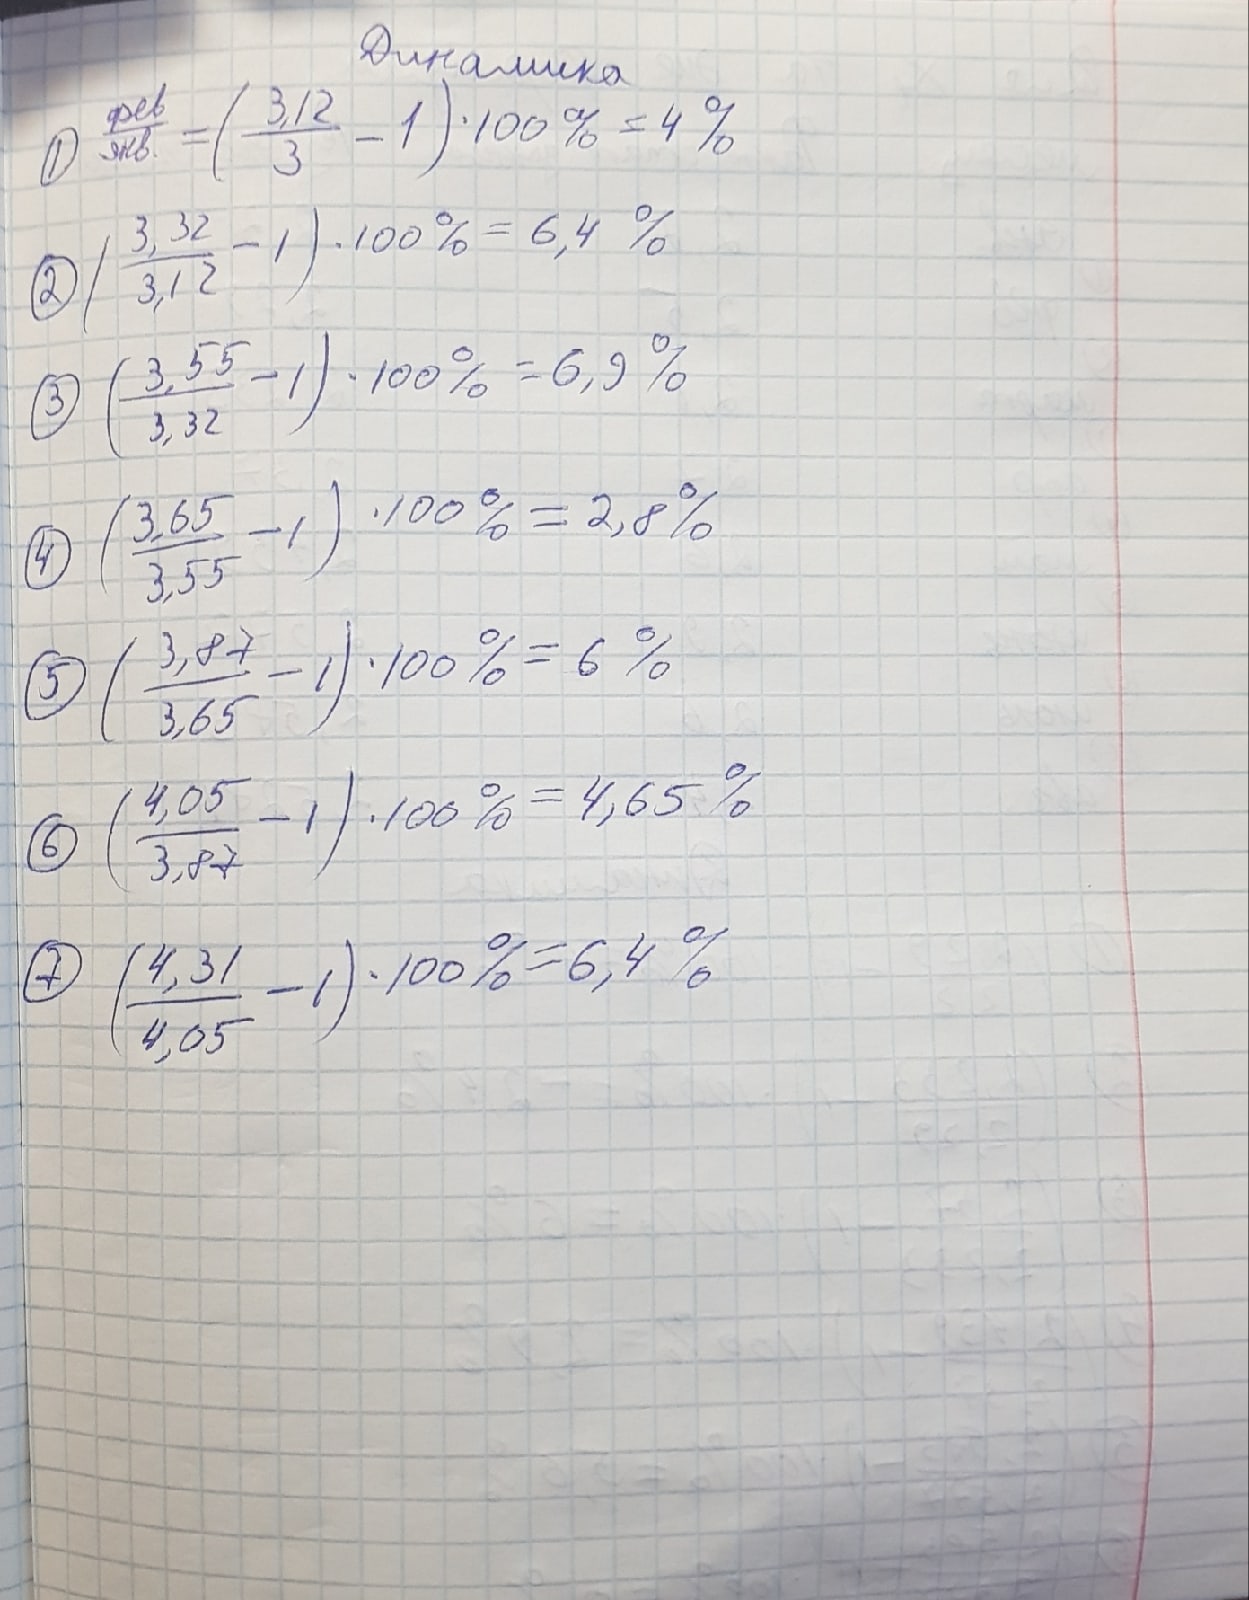 Динамика
① фев/янв. = (3,12/3 - 1) · 100 % = 4 %
② (3,32/3,12 - 1) · 100 % = 6,4 %
③ (3,55/3,32 - 1) · 100 % = 6,9 %
④ (3,65/3,55 - 1) · 100 % = 2,8 %
⑤ (3,87/3,65 - 1) · 100 % = 6 %
⑥ (4,05/3,87 - 1) · 100 % = 4,65 %
⑦ (4,31/4,05 - 1) · 100 % = 6,4 %